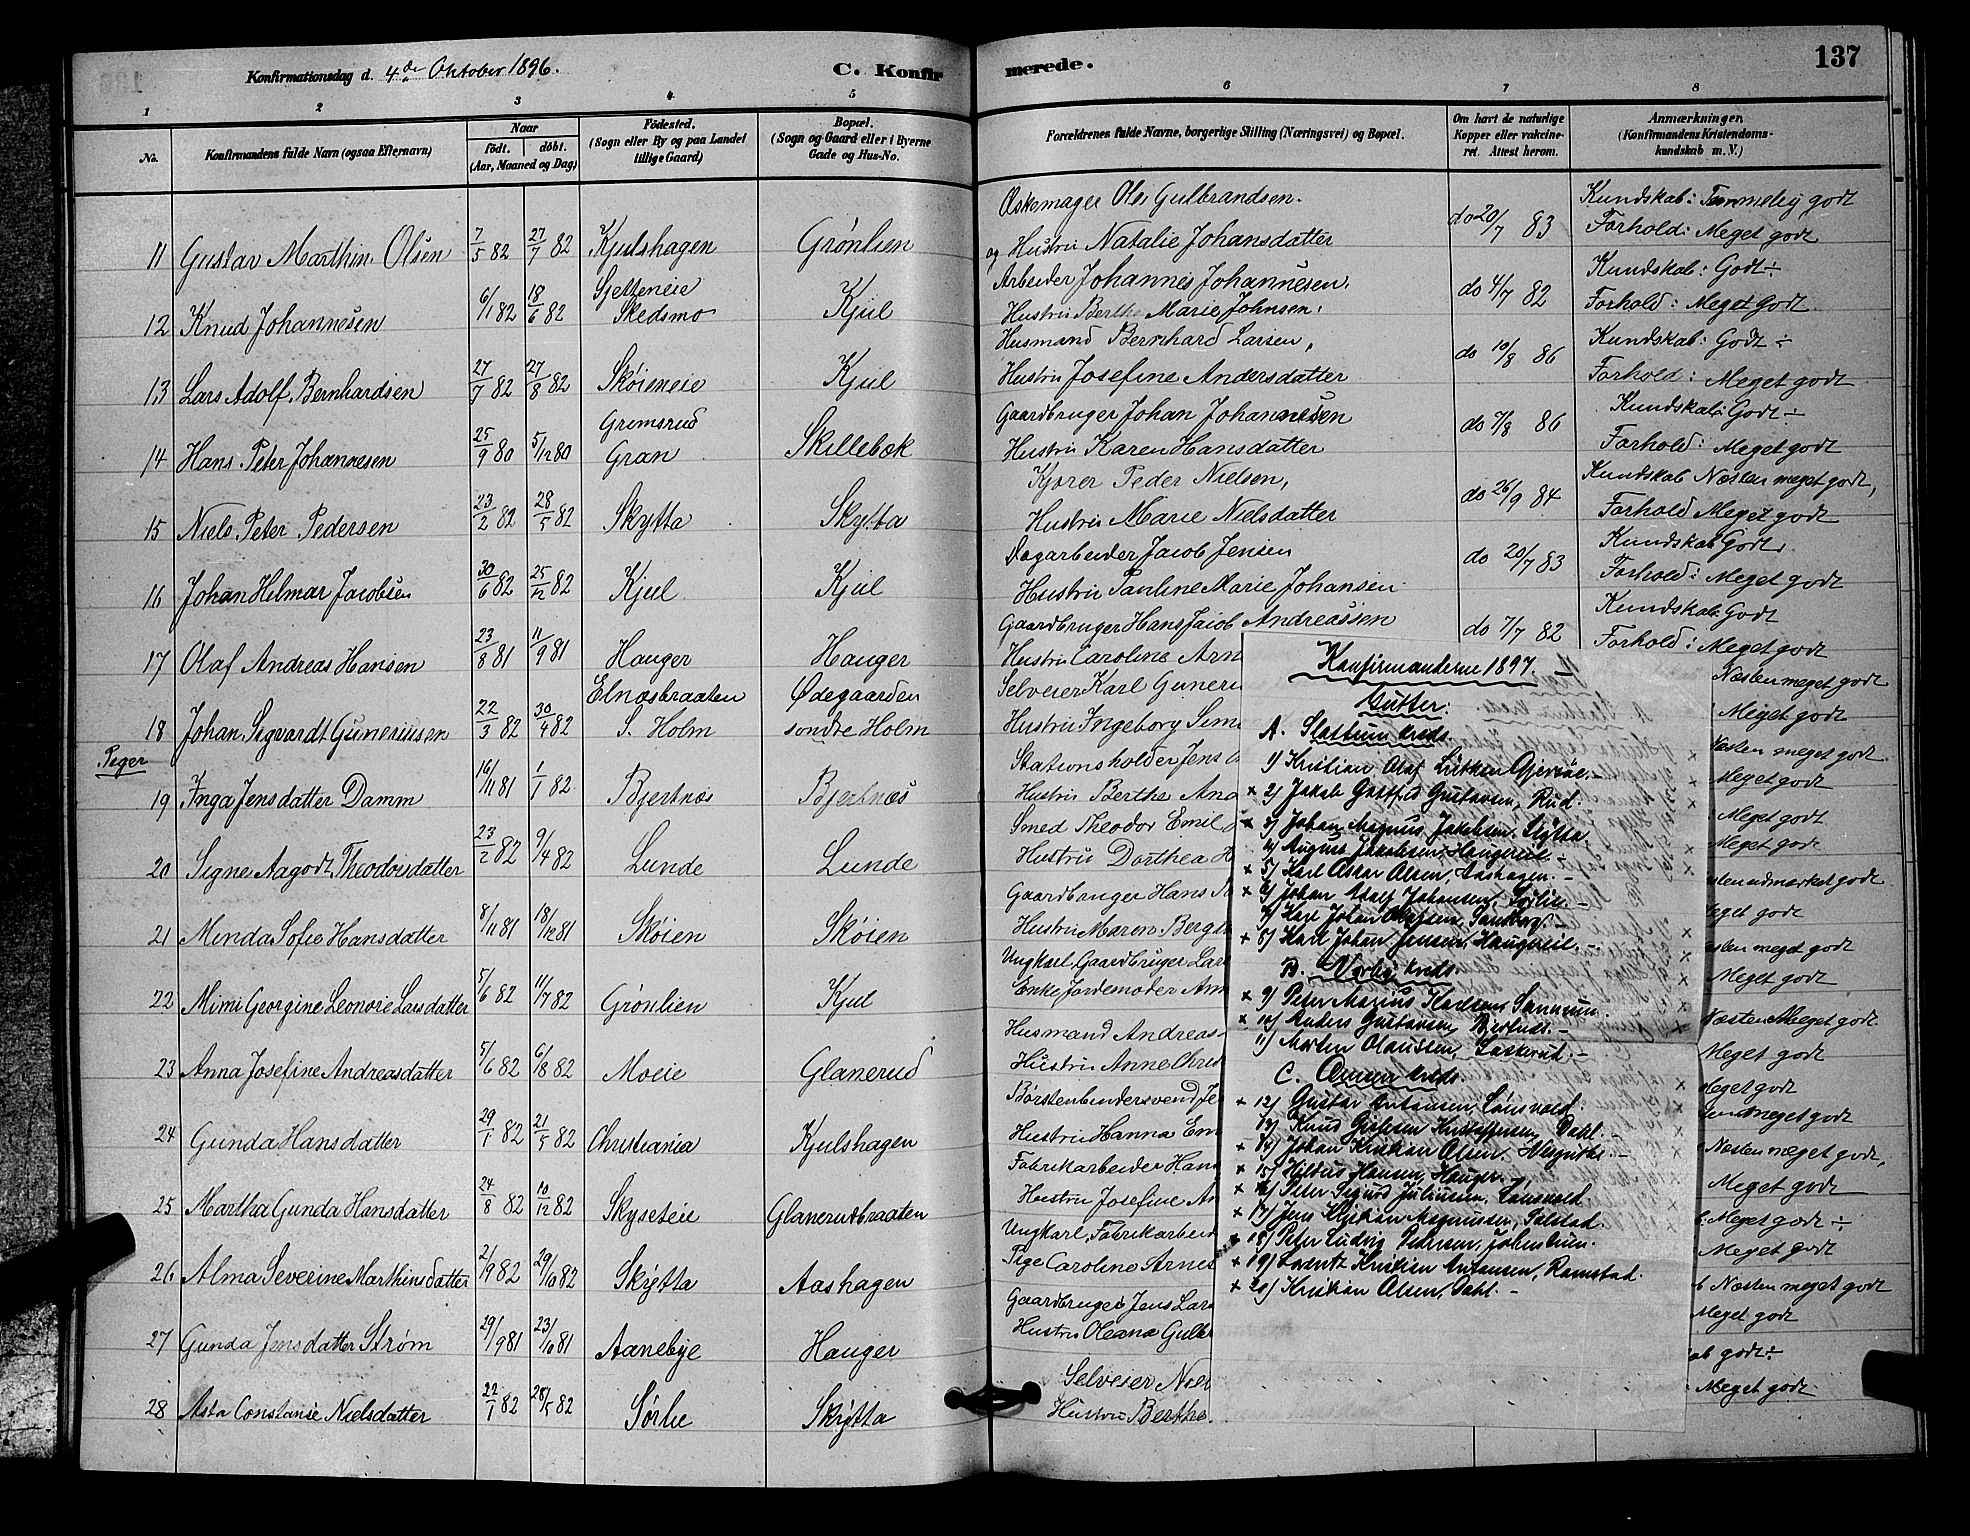 Konfirmationsdag d. 4de Oktober 1896.
C. Konfir
merede.
137
1 2 3 4 5 6 7 8
No.
Konfirmandens fulde Navn (ogsaa Efternavn)
Naar
født. døbt.
(Aar, Maaned og Dag)
Fødested.
(Sogn eller By og paa Landet
tillige Gaard)
Bopæl.
(Sogn og Gaard eller i Byerne
Gade og Hus-No.
Forældrenes fulde Navne, borgerlige Stilling (Næringsvei) og Bopæl.
Om havt de naturlige
Kopper eller vakcine-
ret. Attest herom.
Anmærkninger
(Konfirmandens Kristendoms-
kundskab m. V.)
11 Gustav Marthin Olsen 7/5 82 27/7 82 Kjulshagen Grønlien
Ole Gulbrandsen.
og Hustru Natalie Johansdatter
do 20/7 83
Kundskab: Temmelig godt
Forhold: Meget godt
12 Knud Johannesen 6/1 82 18/6 82 Sjetteneie Skedsmo Kjul
Arbeider Johannes Johannesen.
Hustru Berthe Marie Johnsen.
do 4/7 82
Kundskab: Godt ÷
Forhold: Meget Godt
13 Lars Adolf Bernhardsen 27/7 82 27/8 82 Skøieneie Kjul
Husmand Bernhard Larsen,
Hustru Josefine Andersdatter
do 10/8 86
Kundskab: Godt ÷
Forhold: Meget godt
14 Hans Peter Johannesen 25/9 80 5/12 80 Grimsrud Gran Skillebæk
Gaardbruger Johan Johannesen
Hustru Karen Hansdatter
do 7/8 86
Kundskab: Godt ÷
Forhold: Meget godt
15 Niels Peter Pedersen 23/2 82 28/5 82 Skytta Skytta
Kjører Peder Nielsen,
Hustru Marie Nielsdatter
do 26/9 84
Kundskab Næsten meget godt,
Forhold Meget godt
16 Johan Hilmar Jacobsen 30/6 82 25/12 82 Kjul Kjul
Dagarbeider Jacob Jensen
Hustru Pauline Marie Johansen
do 20/7 83
Kundskab Godt
Forhold: Meget godt
17 Olaf Andreas Hansen 23/8 81 11/9 81 Hauger Hauger
Gaardbruger Hans Jacob Andreassen
Hustru Caroline Arn
do 7/7 82
Kundskab Godt
Forhold: Meget godt
18 Johan Sigvardt Guneriussen 22/3 82 30/4 82 Elnæsbraaten S. Holm Ødegaarden søndre Holm
Selveier Karl Guneriu
Hustru Ingeborg Sim
Næsten meget godt
Meget godt
Piger
19 Inga Jensdatter Damm 16/11 81 1/1 82 Bjertnæs Bjertnæs
Stationsholder Jens
Hustru Berthe And
Næsten meget godt
Meget godt
20 Signe Aagodt Theodorsdatter 23/2 82 9/4 82 Lunde Lunde
Smed Theodor Emil
Hustru Dorthea H
Meget godt
Meget godt
21 Minda Sofie Hansdatter 8/11 81 18/12 81 Skøien Skøien
Gaardbruger Hans
Hustru Maren Berg
sten udmærket godt
Meget godt
22 Mimi Georgine Leonore Larsdatter 5/6 82 11/7 82 Grønlien Kjul
Ungkarl, Gaardbruger Lars
Enke Jordemoder Ann
sten meget godt
Meget godt
23 Anna Josefine Andreasdatter 5/6 82 6/8 82 Moeie Glanerud
Husmand Andreas
Hustru Anne Chris
Næsten Meget godt
Meget godt
24 Gunda Hansdatter 29/1 82 21/5 82 Christiania Kjulshagen
Børstenbindersvend
Hustru Hanna Em
Meget godt
meget godt
25 Martha Gunda Hansdatter 24/8 82 10/12 82 Skyseteie Glanerudbraaten
Fabrikarbeider Hans
Hustru Josefine An
Næsten meget godt,
Meget godt
26 Alma Severine Marthinsdatter 21/9 82 29/10 82 Skytta Aashagen
Ungkarl, Fabrikarbeid
Pige Caroline Arnes
Meget godt ÷
Meget godt
27 Gunda Jensdatter Strøm 29/9 81 23/10 81 Aanebye Hauger
Gaardbruger Jens Lars
Hustru Oleana Gulbr
Næsten meget godt
Meget godt
28 Asta Constanse Nielsdatter 22/1 82 28/5 82 Sørlie Skytta
Selveier Niel
Hustru Berthe
ab godt ÷
Meget godt
Konfirmanderne 1897. –
Gutter:
A. Slattum kreds.
1) Kristian Olaf Lütken Gjersøe. –
x 2) Jakob Gotfred Gustavsen, Rud.
x 3) Johan Magnus Jakobsen, Skytta
4) August Jakobsen, Haugereie. –
x 5) Karl Oskar Olsen, Aashagen. –
x 6) Johan Adolf Johansen, Sørlie. –
7) Karl Johan Olafsen, Sandborg. –
x 8) Karl Johan Jensen, Haugereie. –
B. Varbu kreds.
x 9) Peter Marius Karlsen, Sannum.
x 10) Anders Gustavsen, Bjertnæs. –
11) Morten Olaussen, Laskerud. –
C. Aamun kreds.
x 12) Gustav Antonsen, Lønsvold.
13) Knud Kristoffersen, Dahl. –
x 14) Johan Kristian Olsen,
x 15) Hilbert Hansen, Hauger.
x 16) Peter Sigurd Juliussen, Lønsvold.
x 17) Jens Kristian Magnussen,
x 18) Peter Ludvig Pedersen,
x 19) Lorentz Kristian Antonsen, Ramstad.
x 20) Kristian Olsen, Dahl. –